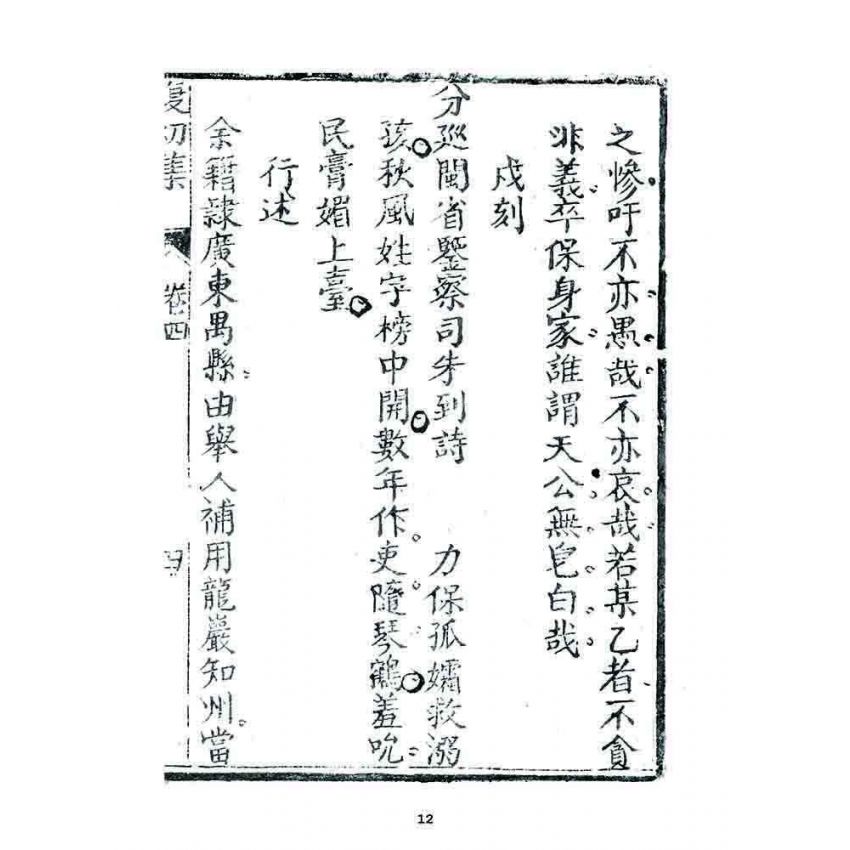 之慘吁不亦愚哉不亦哀哉若某乙者不貪
非義卒保身家誰謂天公無皂白哉
戍刻
分廵閩省鑒察司朱到詩　力保孤孀救溺
孩秋風姓字榜中開數年作吏隨琴鶴羞吮
民膏媚上臺
行述
余籍隷廣東禺縣由舉人補用龍巖知州當
卷四
四
12